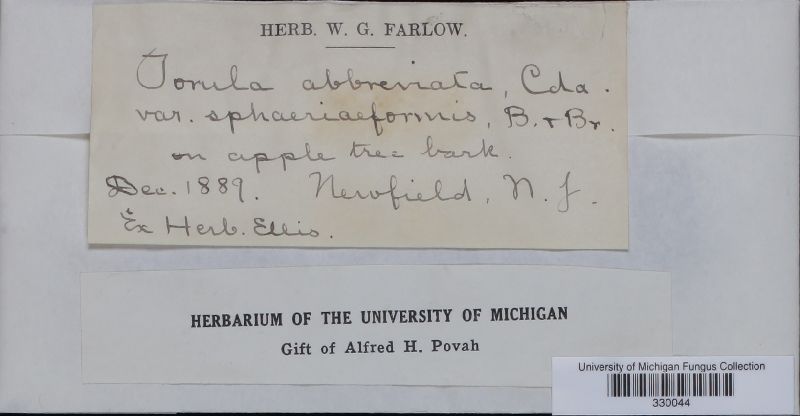 HERB. W. G. FARLOW.
Torula abbreviata, Cda.
var. sphaeriaeformis, B. & Br.
on apple tree bark.
Dec. 1889. Newfield, N. J.
Ex Herb. Ellis.
HERBARIUM OF THE UNIVERSITY OF MICHIGAN
Gift of Alfred H. Povah
University of Michigan Fungus Collection
330044